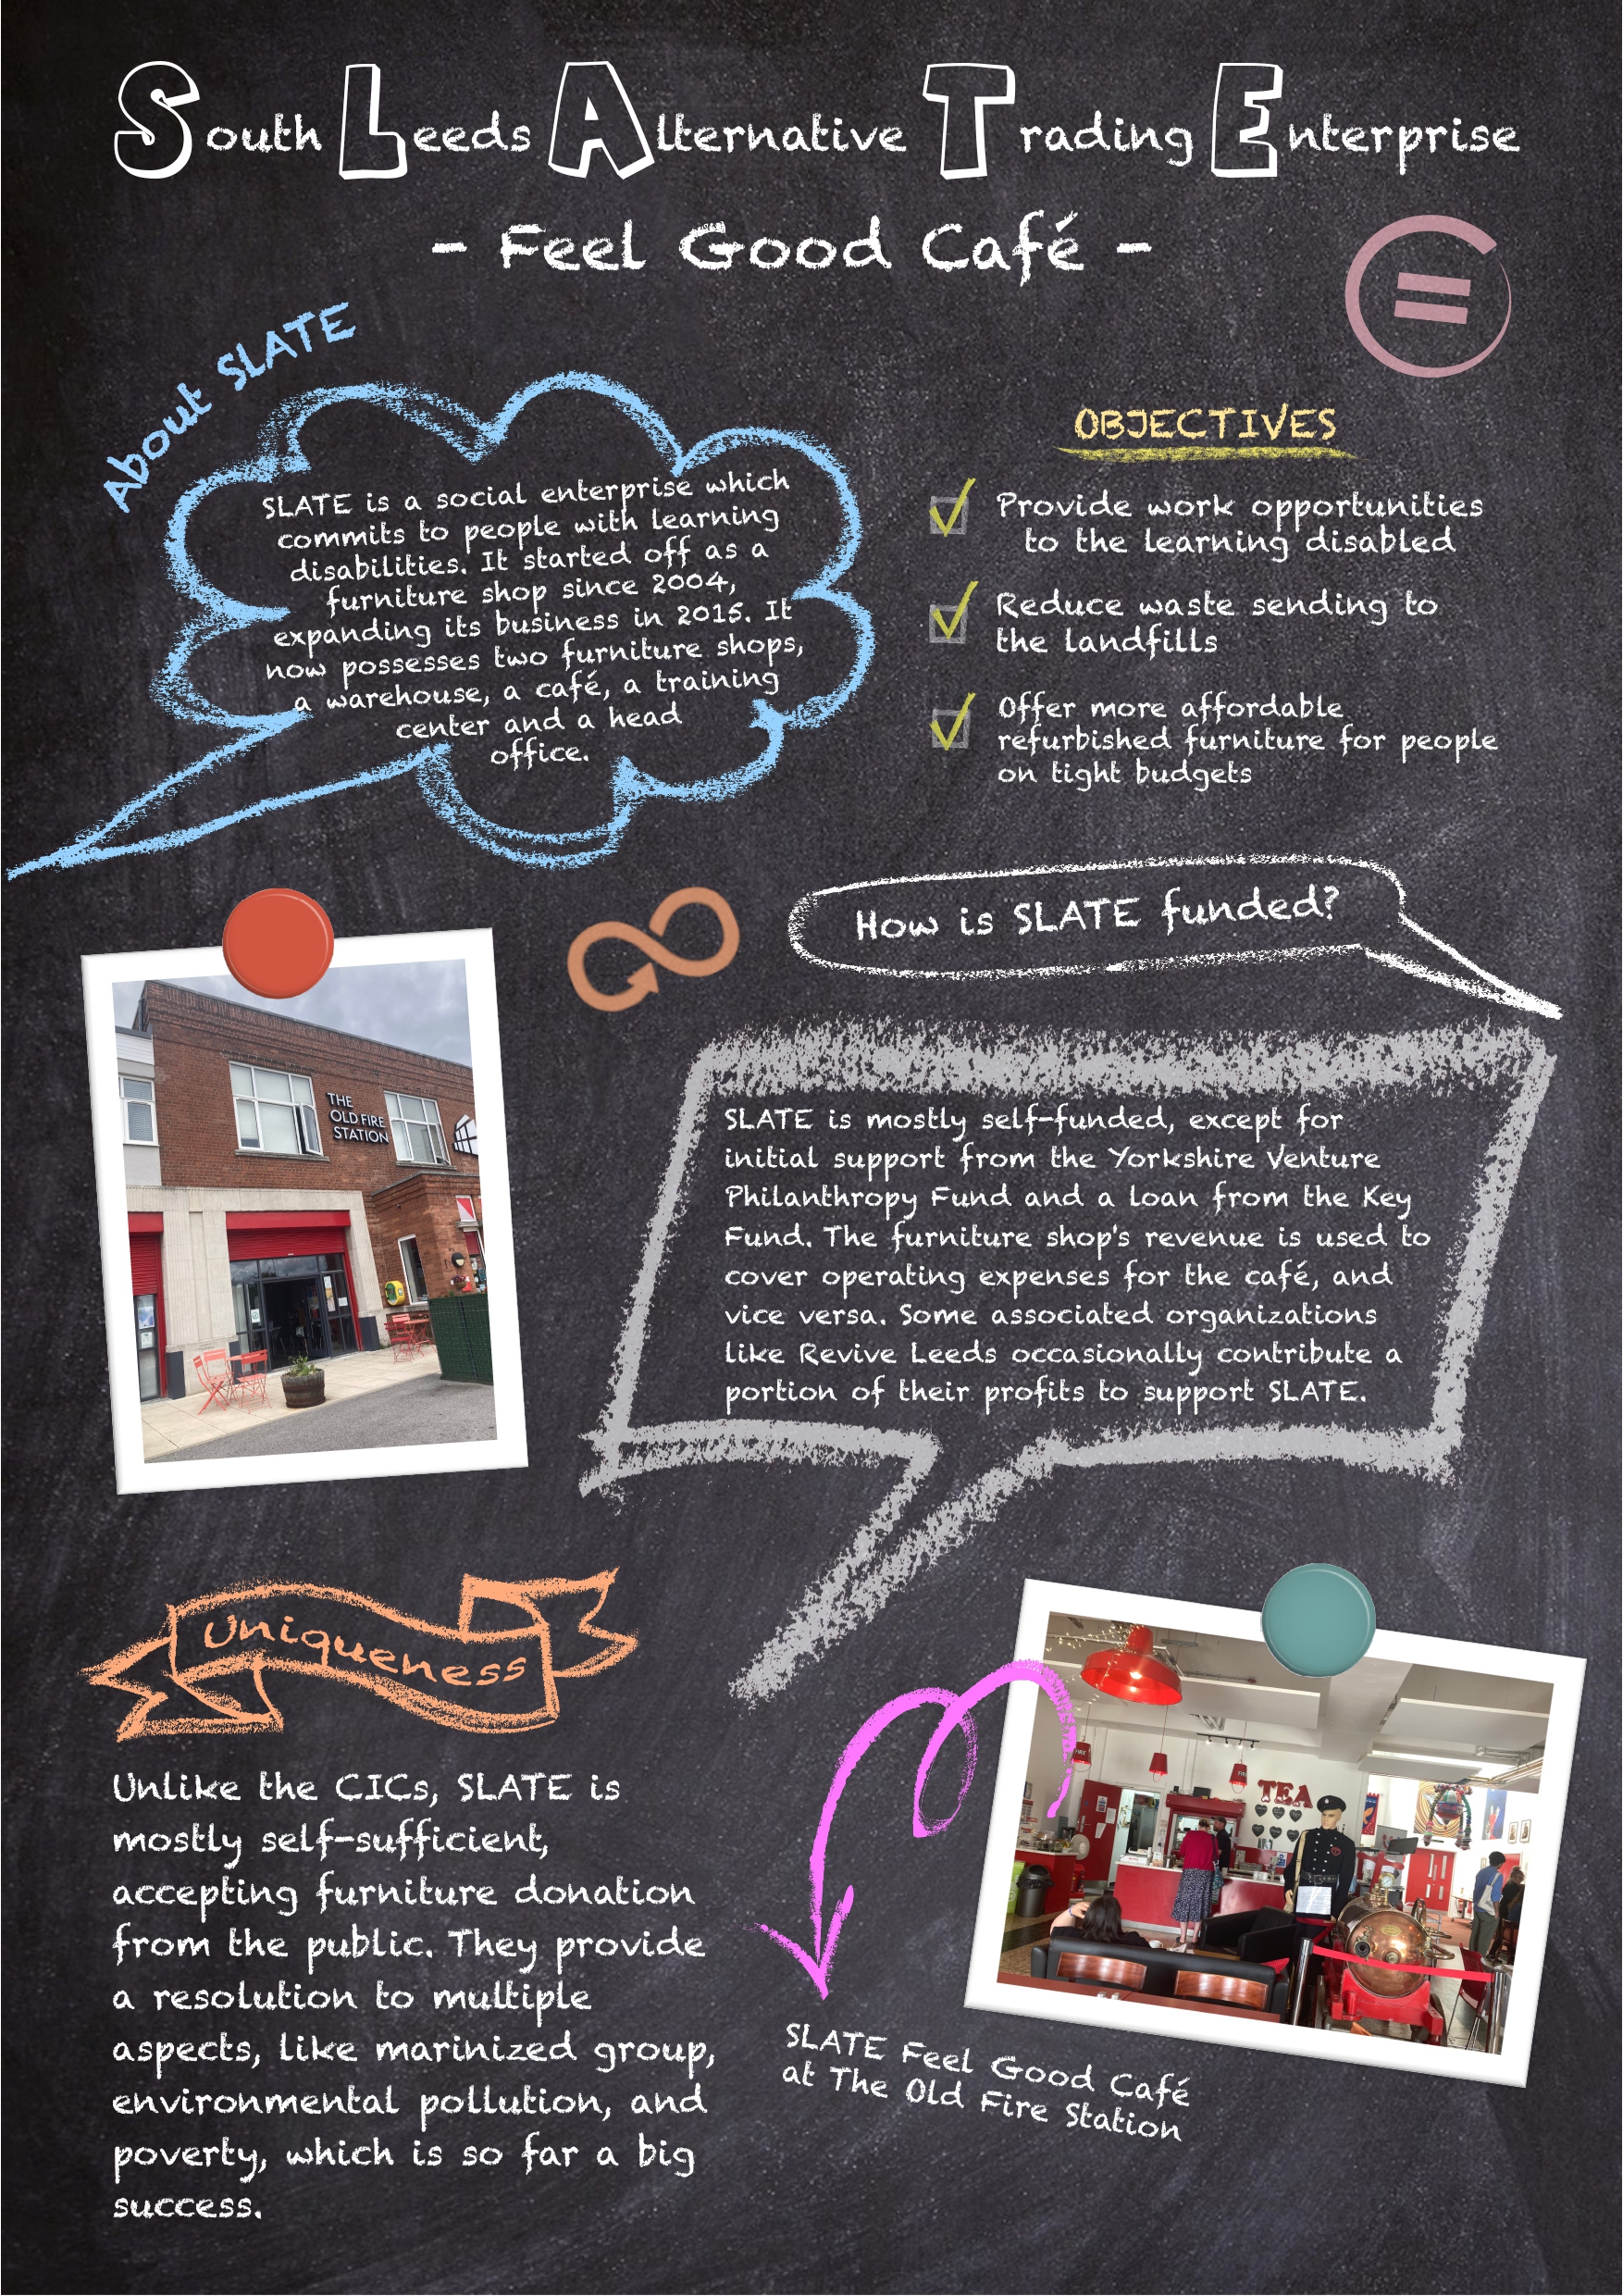 South Leeds Alternative Trading Enterprise
- Feel Good Café -
About SLATE
SLATE is a social enterprise which
commits to people with learning
disabilities. It started off as a
furniture shop since 2004,
expanding its business in 2015. It
now possesses two furniture shops,
a warehouse, a café, a training
center and a head
office.
OBJECTIVES
Provide work opportunities
to the learning disabled
Reduce waste sending to
the landfills
Offer more affordable
refurbished furniture for people
on tight budgets
How is SLATE funded?
SLATE is mostly self-funded, except for
initial support from the Yorkshire Venture
Philanthropy Fund and a loan from the Key
Fund. The furniture shop's revenue is used to
cover operating expenses for the café, and
vice versa. Some associated organizations
like Revive Leeds occasionally contribute a
portion of their profits to support SLATE.
THE
OLD FIRE
STATION
Uniqueness
Unlike the CICs, SLATE is
mostly self-sufficient,
accepting furniture donation
from the public. They provide
a resolution to multiple
aspects, like marinized group,
environmental pollution, and
poverty, which is so far a big
success.
TEA
SLATE Feel Good Café
at The Old Fire Station